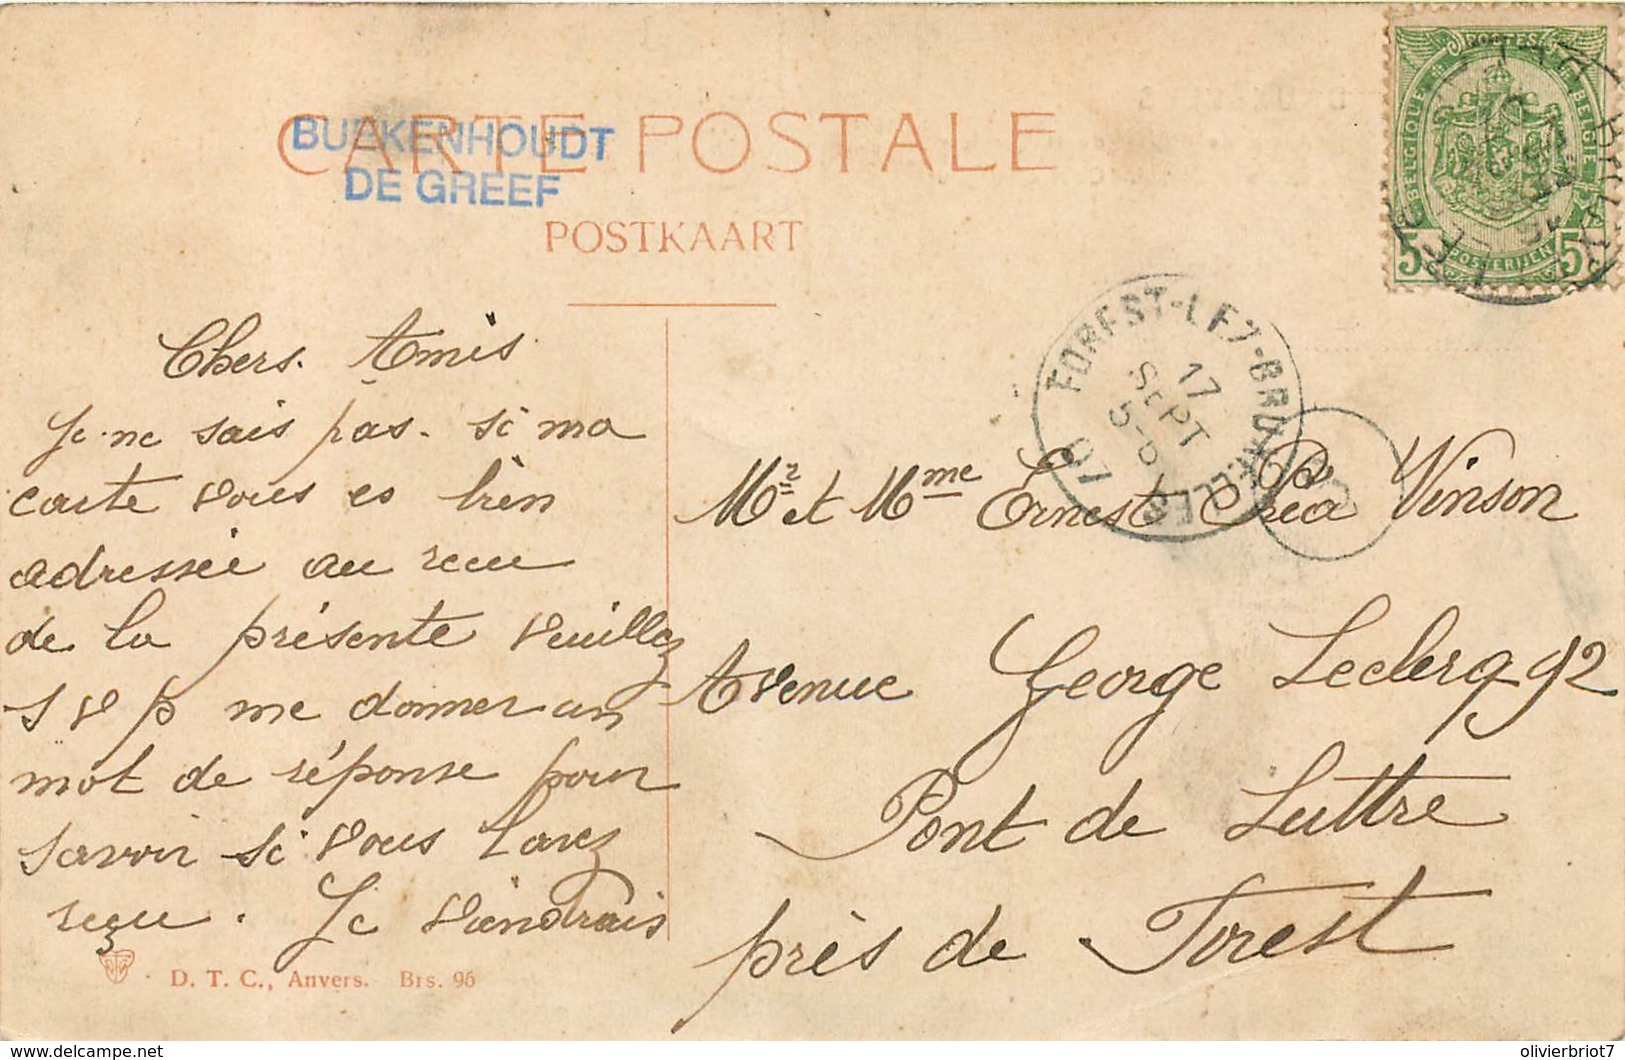 CARTE POSTALE
BUEKENHOUDT
DE GREEF
POSTKAART
POSTES
BELGIQUE
BELGIË
POSTERIJEN
5 5
FOREST-LEZ-BRUXELLES
17
SEPT
5-6
07
Chers. Amis
Je ne sais pas. si ma
carte vous es bien
adressée au recu
de la présente veuillez
s v p me donner un
mot de réponse pour
savoir si vous l'avez
reçu. Je viendrais
Mr et Mme Ernest Vinson
Avenue George Leclerq 92
Pont de Luttre
près de Forest
D. T. C., Anvers. Brs. 96
www.delcampe.net
olivierbriot7